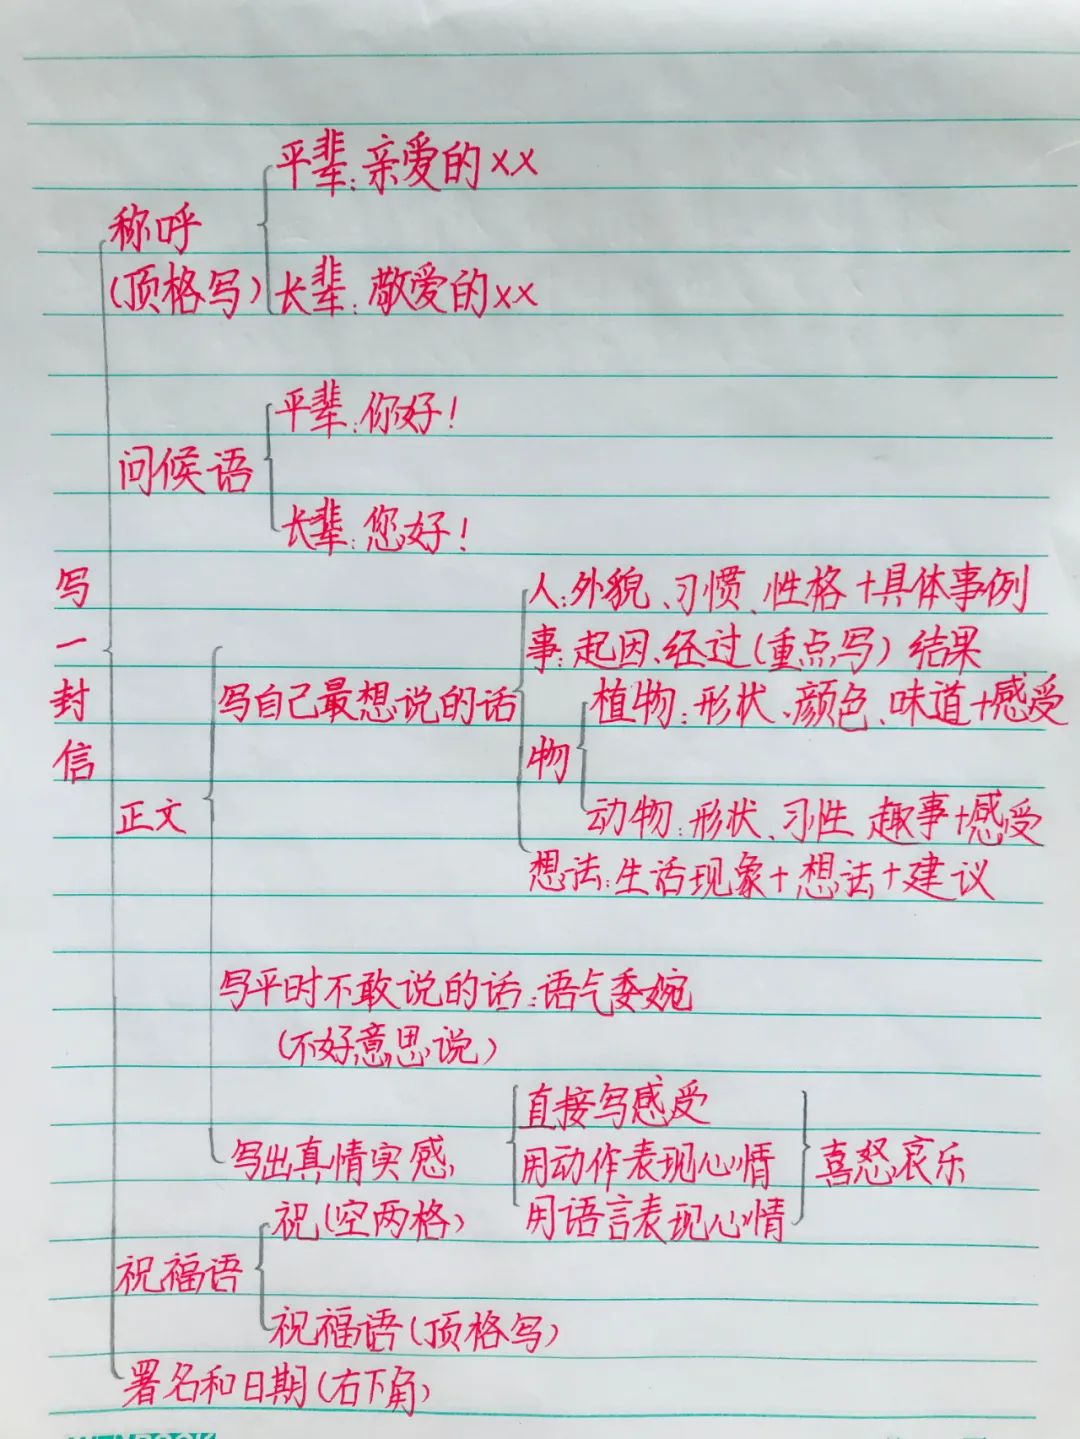 平辈:亲爱的××
称呼
(顶格写)
长辈:敬爱的××
平辈:你好!
问候语
长辈:您好!
写一封信
人:外貌、习惯、性格+具体事例
事:起因、经过(重点写)结果
写自己最想说的话
植物:形状、颜色、味道+感受
物
正文
动物:形状、习性 趣事+感受
想法:生活现象+想法+建议
写平时不敢说的话:语气委婉
(不好意思说)
直接写感受
写出真情实感
用动作表现心情
喜怒哀乐
用语言表现心情
祝(空两格)
祝福语
祝福语(顶格写)
署名和日期(右下角)